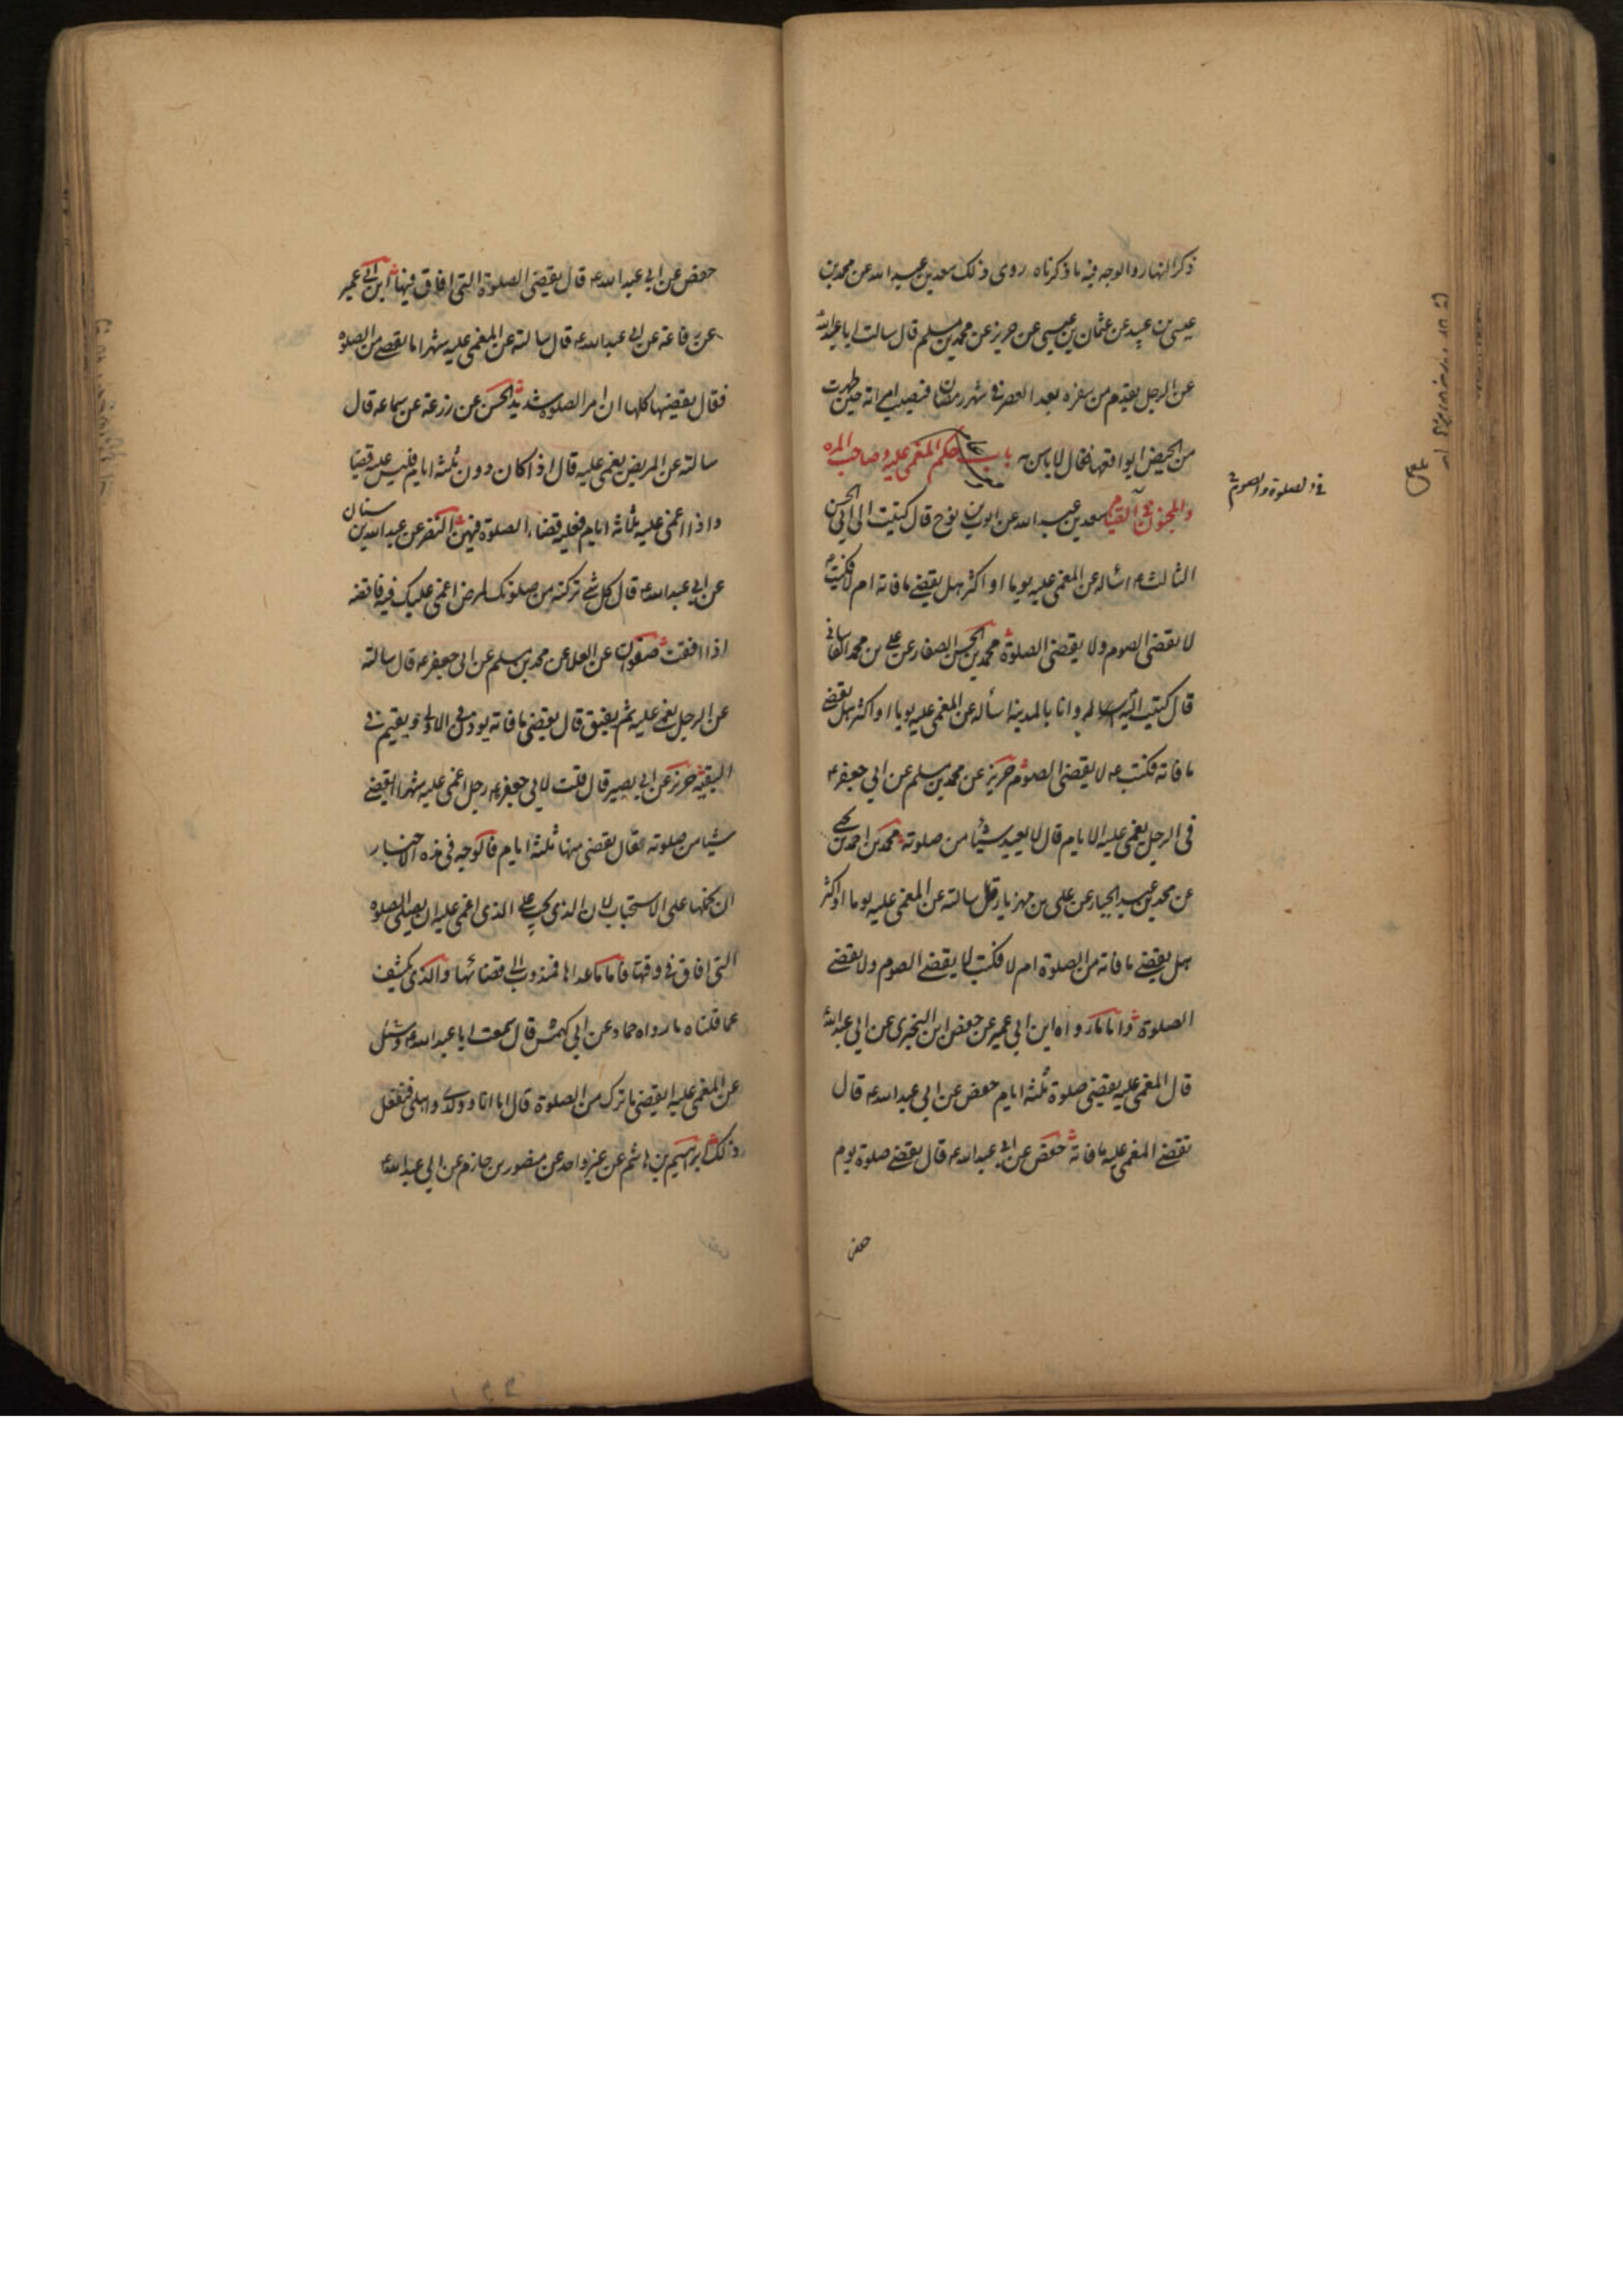 ذكر النهار والوجه فيه ما ذكرناه روى ذلك سعد بن عبد الله عن محمد بن
عيسى بن عبيد عن عثمان بن عيسى عن حريز عن محمد بن مسلم قال سالت ابا عبد الله
عن الرجل يقدم من سفره بعد العصر في شهر رمضان فيصيب امراته حين طهرت
من الحيض ايواقعها فقال لا باس به باب حكم المغمى عليه وصاحب المره
والمجنون في الصيام سعد بن عبد الله عن ايوب بن نوح قال كتبت الى ابي الحسن
في الصلوة والصوم
الثالث ع اسأله عن المغمى عليه يوما او اكثر هل يقضي ما فاته ام لا فكتب
لا يقضي الصوم ولا يقضي الصلوة محمد بن الحسن الصفار عن علي بن محمد القاساني
قال كتبت اليه وانا بالمدينة اسأله عن المغمى عليه يوما او اكثر هل يقضي
ما فاته فكتب ع لا يقضي الصوم حريز عن محمد بن مسلم عن ابي جعفر ع
في الرجل يغمى عليه الايام قال لا يعيد شيئا من صلوته محمد بن احمد بن يحيى
عن محمد بن عبد الجبار عن علي بن مهزيار قال سالته عن المغمى عليه يوما او اكثر
هل يقضي ما فاته من الصلوة ام لا فكتب لا يقضي الصوم ولا يقضي
الصلوة واما ما رواه ابن ابي عمير عن حفص ابن البختري عن ابي عبد الله
قال المغمى عليه يقضي صلوة ثلثة ايام حفص عن ابي عبد الله ع قال
يقضي المغمى عليه ما فاته حفص عن ابي عبد الله ع قال يقضي صلوة يوم
حفص
حفص عن ابي عبد الله ع قال يقضي الصلوة التي افاق فيها ابن ابي عمير
عن رفاعة عن ابي عبد الله ع قال سالته عن المغمى عليه شهرا ما يقضي من الصلوة
فقال يقضيها كلها ان امر الصلوة شديد الحسن عن زرعة عن سماعه قال
سالته عن المريض يغمى عليه قال اذا كان دون ثلثة ايام فليس عليه قضا
واذا اغمي عليه ثلاثة ايام فعليه قضاء الصلوة فيهن النضر عن عبد الله بن سنان
عن ابي عبد الله ع قال كل شي تركته من صلوتك لمرض اغمي عليك فيه فاقضه
اذا افقت صفوان عن العلا عن محمد بن مسلم عن ابي جعفر ع قال سالته
عن الرجل يغمى عليه ثم يفيق قال يقضي ما فاته يوذن في الاولى ويقيم في
البقية حريز عن ابي بصير قال قلت لابي جعفر ع رجل اغمي عليه شهرا ايقضي
شيئا من صلوته فقال يقضي منها ثلثة ايام فالوجه في هذه الاخبار
ان نحملها على الاستحباب لان الذي يجب على الذي اغمي عليه ان يصلي الصلوة
التي افاق في وقتها فاما ما عداها فمندوب الى قضائها والذي يكشف
عما قلناه ما رواه حماد عن ابي كهمش قال سمعت ابا عبد الله ع وسئل
عن المغمى عليه ايقضي ما ترك من الصلوة قال اما انا وولدي واهلي فنفعل
ذلك ابراهيم بن هاشم عن غير واحد عن منصور بن حازم عن ابي عبد الله ع